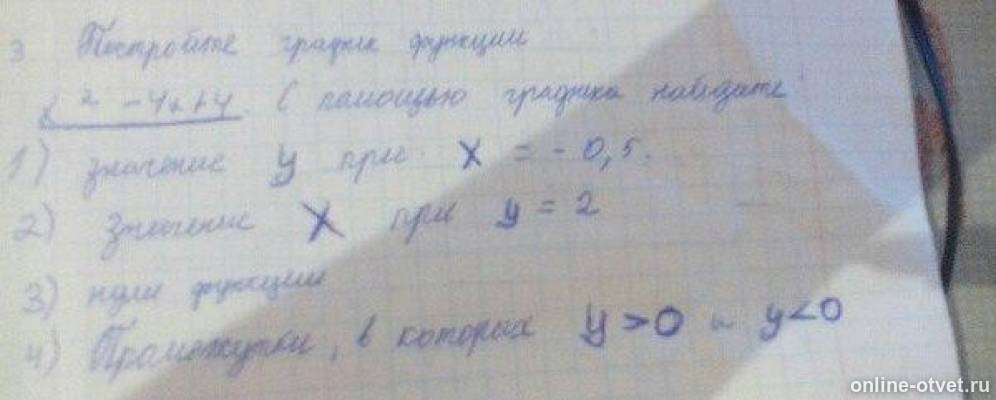 3 Постройте график функции
x² -4x+4. С помощью графика найдите
1) значение y при x = -0,5.
2) Значение X при y = 2
3) нули функции
4) Промежутки, в которых y>0 и y<0
online-otvet.ru